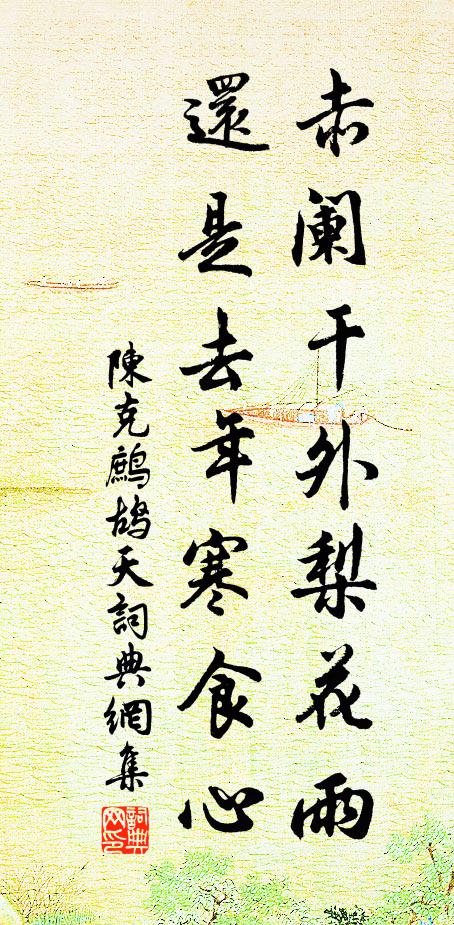 赤闌干外梨花雨
還是去年寒食心
陳克鷓鴣天詞典網集
詞典網印